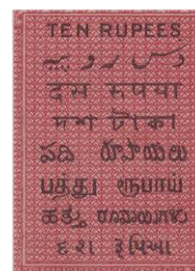 TEN RUPEES
دس روپیہ
दस रुपया
দশ টাকা
పది రూపాయలు
பத்து ரூபாய்
ಹತ್ತು ರೂಪಾಯಿಗಳು
દશ રૂપિઆ